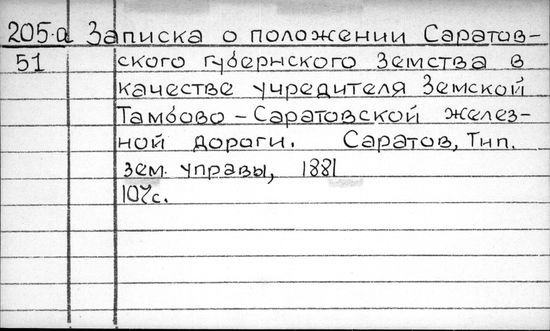 205-а Записка о положении Саратов-
51 ского губернского Земства в
качестве учредителя Земской
Тамбово-Саратовской желез-
ной дороги. Саратов, Тип.
зем. управы, 1881
107с.